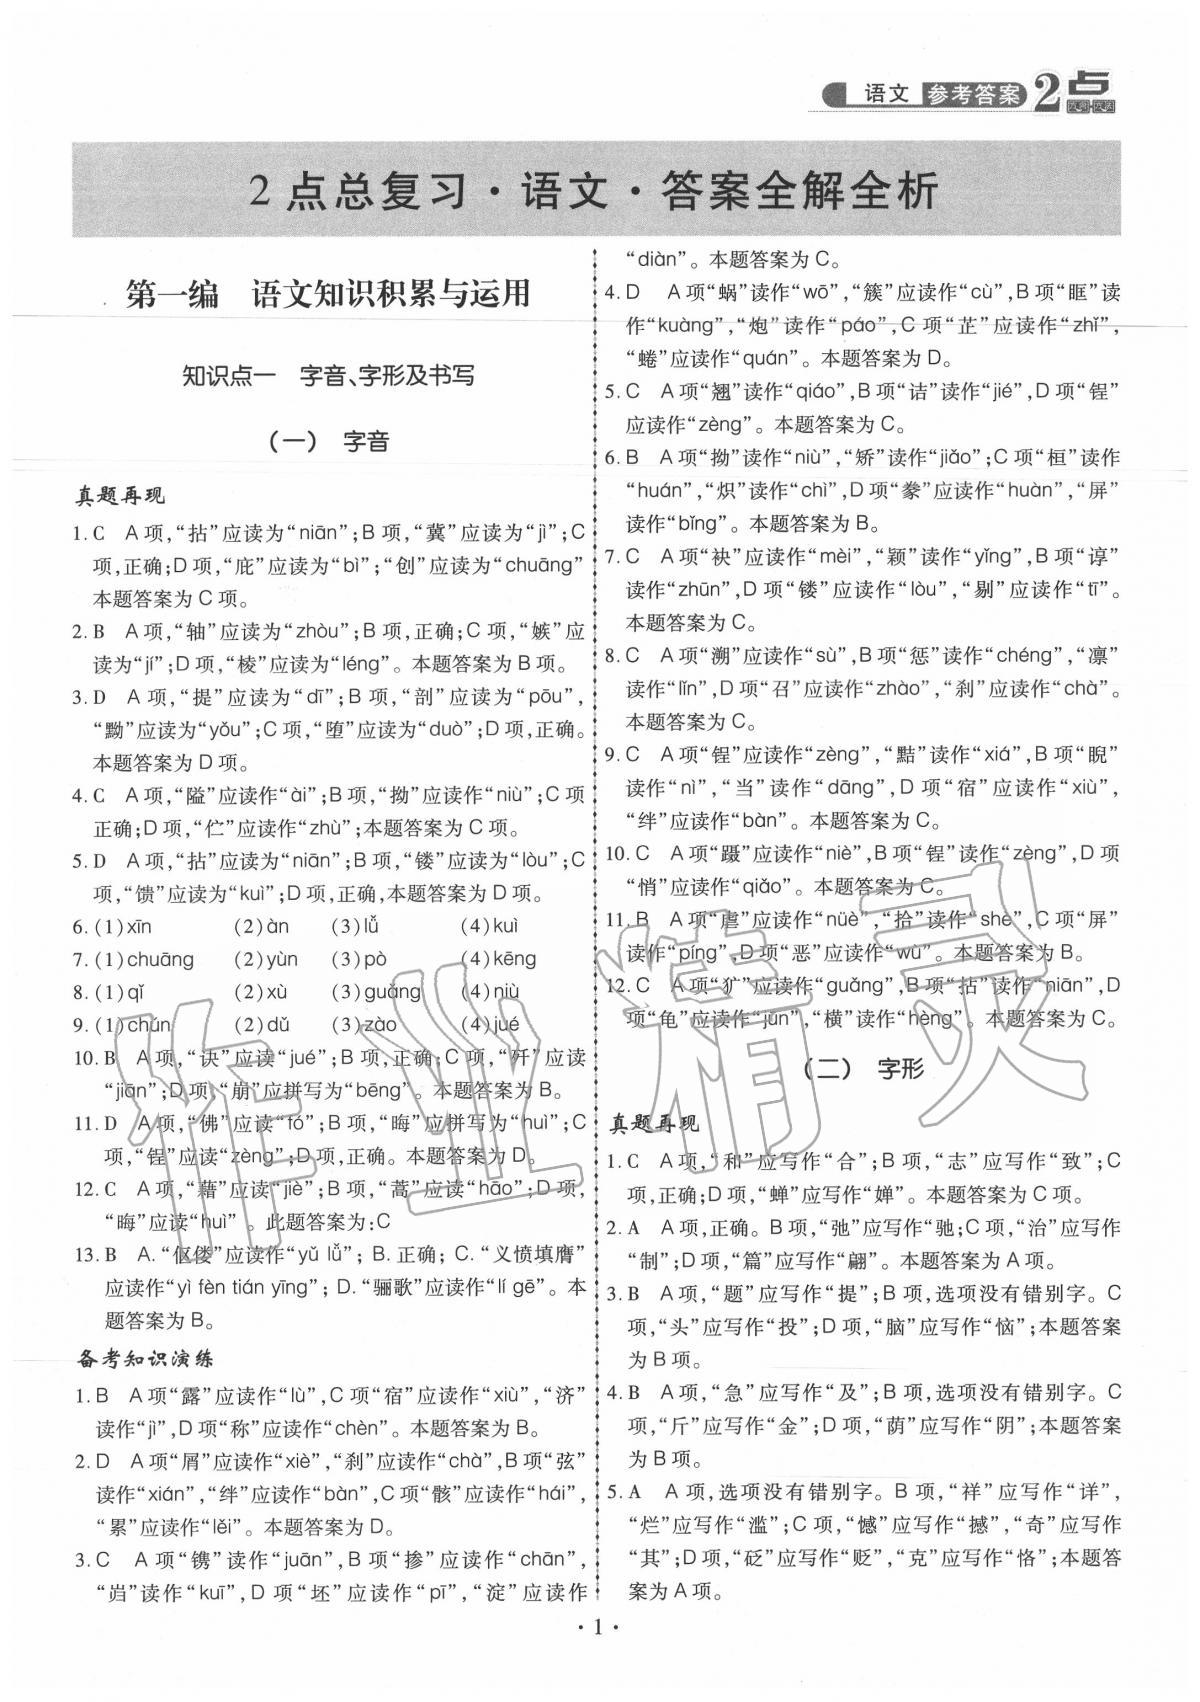 语文 参考答案 2点
2点总复习·语文·答案全解全析
第一编 语文知识积累与运用
知识点一 字音、字形及书写
(一) 字音
真题再现
1. C A项,“拈”应读为“niān”;B项,“冀”应读为“jì”;C
项,正确;D项,“庇”应读为“bì”;“创”应读为“chuāng”
本题答案为C项。
2. B A项,“轴”应读为“zhòu”;B项,正确;C项,“嫉”应
读为“jí”;D项,“棱”应读为“léng”。本题答案为B项。
3. D A项,“提”应读为“dī”;B项,“剖”应读为“pōu”,
“黝”应读为“yǒu”;C项,“堕”应读为“duò”;D项,正确。
本题答案为D项。
4. C A项,“隘”应读作“ài”;B项,“拗”应读作“niù”;C项
正确;D项,“伫”应读作“zhù”;本题答案为C项。
5. D A项,“拈”应读为“niān”;B项,“镂”应读为“lòu”;C
项,“馈”应读为“kuì”;D项,正确,本题答案为D项。
6. (1)xīn (2)àn (3)lǚ (4)kuì
7. (1)chuāng (2)yùn (3)pò (4)kēng
8. (1)qǐ (2)xù (3)guǎng (4)niù
9. (1)chún (2)dǔ (3)zào (4)jué
10. B A项,“诀”应读“jué”;B项,正确;C项,“歼”应读
“jiān”;D项,“崩”应拼写为“bēng”。本题答案为B。
11. D A项,“佛”应读“fó”;B项,“晦”应拼写为“huì”;C
项,“锃”应读“zèng”;D项,正确。本题答案为D。
12. C A项,“藉”应读“jiè”;B项,“蒿”应读“hāo”;D项,
“晦”应读“huì”。此题答案为:C
13. B A. “伛偻”应读作“yǔ lǚ”; B. 正确; C. “义愤填膺”
应读作“yì fèn tián yīng”; D. “骊歌”应读作“lí gē”。本
题答案为B。
备考知识演练
1. B A项“露”应读作“lù”,C项“宿”应读作“xiù”,“济”
读作“jǐ”,D项“称”应读作“chèn”。本题答案为B。
2. D A项“屑”应读作“xiè”,“刹”应读作“chà”,B项“弦”
读作“xián”,“绊”应读作“bàn”,C项“骸”应读作“hái”,
“累”应读作“lěi”。本题答案为D。
3. C A项“镌”读作“juān”,B项“掺”应读作“chān”,
“岿”读作“kuī”,D项“坯”应读作“pī”,“淀”应读作
“diàn”。本题答案为C。
4. D A项“蜗”读作“wō”,“簇”应读作“cù”,B项“眶”读
作“kuàng”,“炮”读作“páo”,C项“芷”应读作“zhǐ”,
“蜷”应读作“quán”。本题答案为D。
5. C A项“翘”读作“qiáo”,B项“诘”读作“jié”,D项“锃”
应读作“zèng”。本题答案为C。
6. B A项“拗”读作“niù”,“矫”读作“jiǎo”;C项“桓”读作
“huán”,“炽”读作“chì”,D项“豢”应读作“huàn”,“屏”
读作“bǐng”。本题答案为B。
7. C A项“袂”应读作“mèi”,“颖”读作“yǐng”,B项“谆”
读作“zhūn”,D项“镂”应读作“lòu”,“剔”应读作“tī”。
本题答案为C。
8. C A项“溯”应读作“sù”,B项“惩”读作“chéng”,“凛”
读作“lǐn”,D项“召”应读作“zhào”,“刹”应读作“chà”。
本题答案为C。
9. C A项“锃”应读作“zèng”,“黠”读作“xiá”,B项“睨”
读作“nì”,“当”读作“dāng”,D项“宿”应读作“xiù”,
“绊”应读作“bàn”。本题答案为C。
10. C A项“蹑”应读作“niè”,B项“锃”读作“zèng”,D项
“悄”应读作“qiǎo”。本题答案为C。
11. B A项“虐”应读作“nüè”,“拾”读作“shè”,C项“屏”
读作“píng”,D项“恶”应读作“wù”。本题答案为B。
12. C A项“犷”应读作“guǎng”,B项“拈”读作“niān”,D
项“龟”应读作“jūn”,“横”读作“hèng”。本题答案为C。
(二) 字形
真题再现
1. C A项,“和”应写作“合”;B项,“志”应写作“致”;C
项,正确;D项,“蝉”应写作“婵”。本题答案为C项。
2. A A项,正确。B项,“弛”应写作“驰;C项,“治”应写作
“制”;D项,“篇”应写作“翩”。本题答案为A项。
3. B A项,“题”应写作“提”;B项,选项没有错别字。C
项,“头”应写作“投”;D项,“脑”应写作“恼”;本题答案
为B项。
4. B A项,“急”应写作“及”;B项,选项没有错别字。C
项,“斤”应写作“金”;D项,“荫”应写作“阴”;本题答案
为B项。
5. A A项,选项没有错别字。B项,“祥”应写作“详”,
“烂”应写作“滥”;C项,“憾”应写作“撼”,“奇”应写作
“其”;D项,“砭”应写作“贬”,“克”应写作“恪”;本题答
案为A项。
·1·
作业精灵